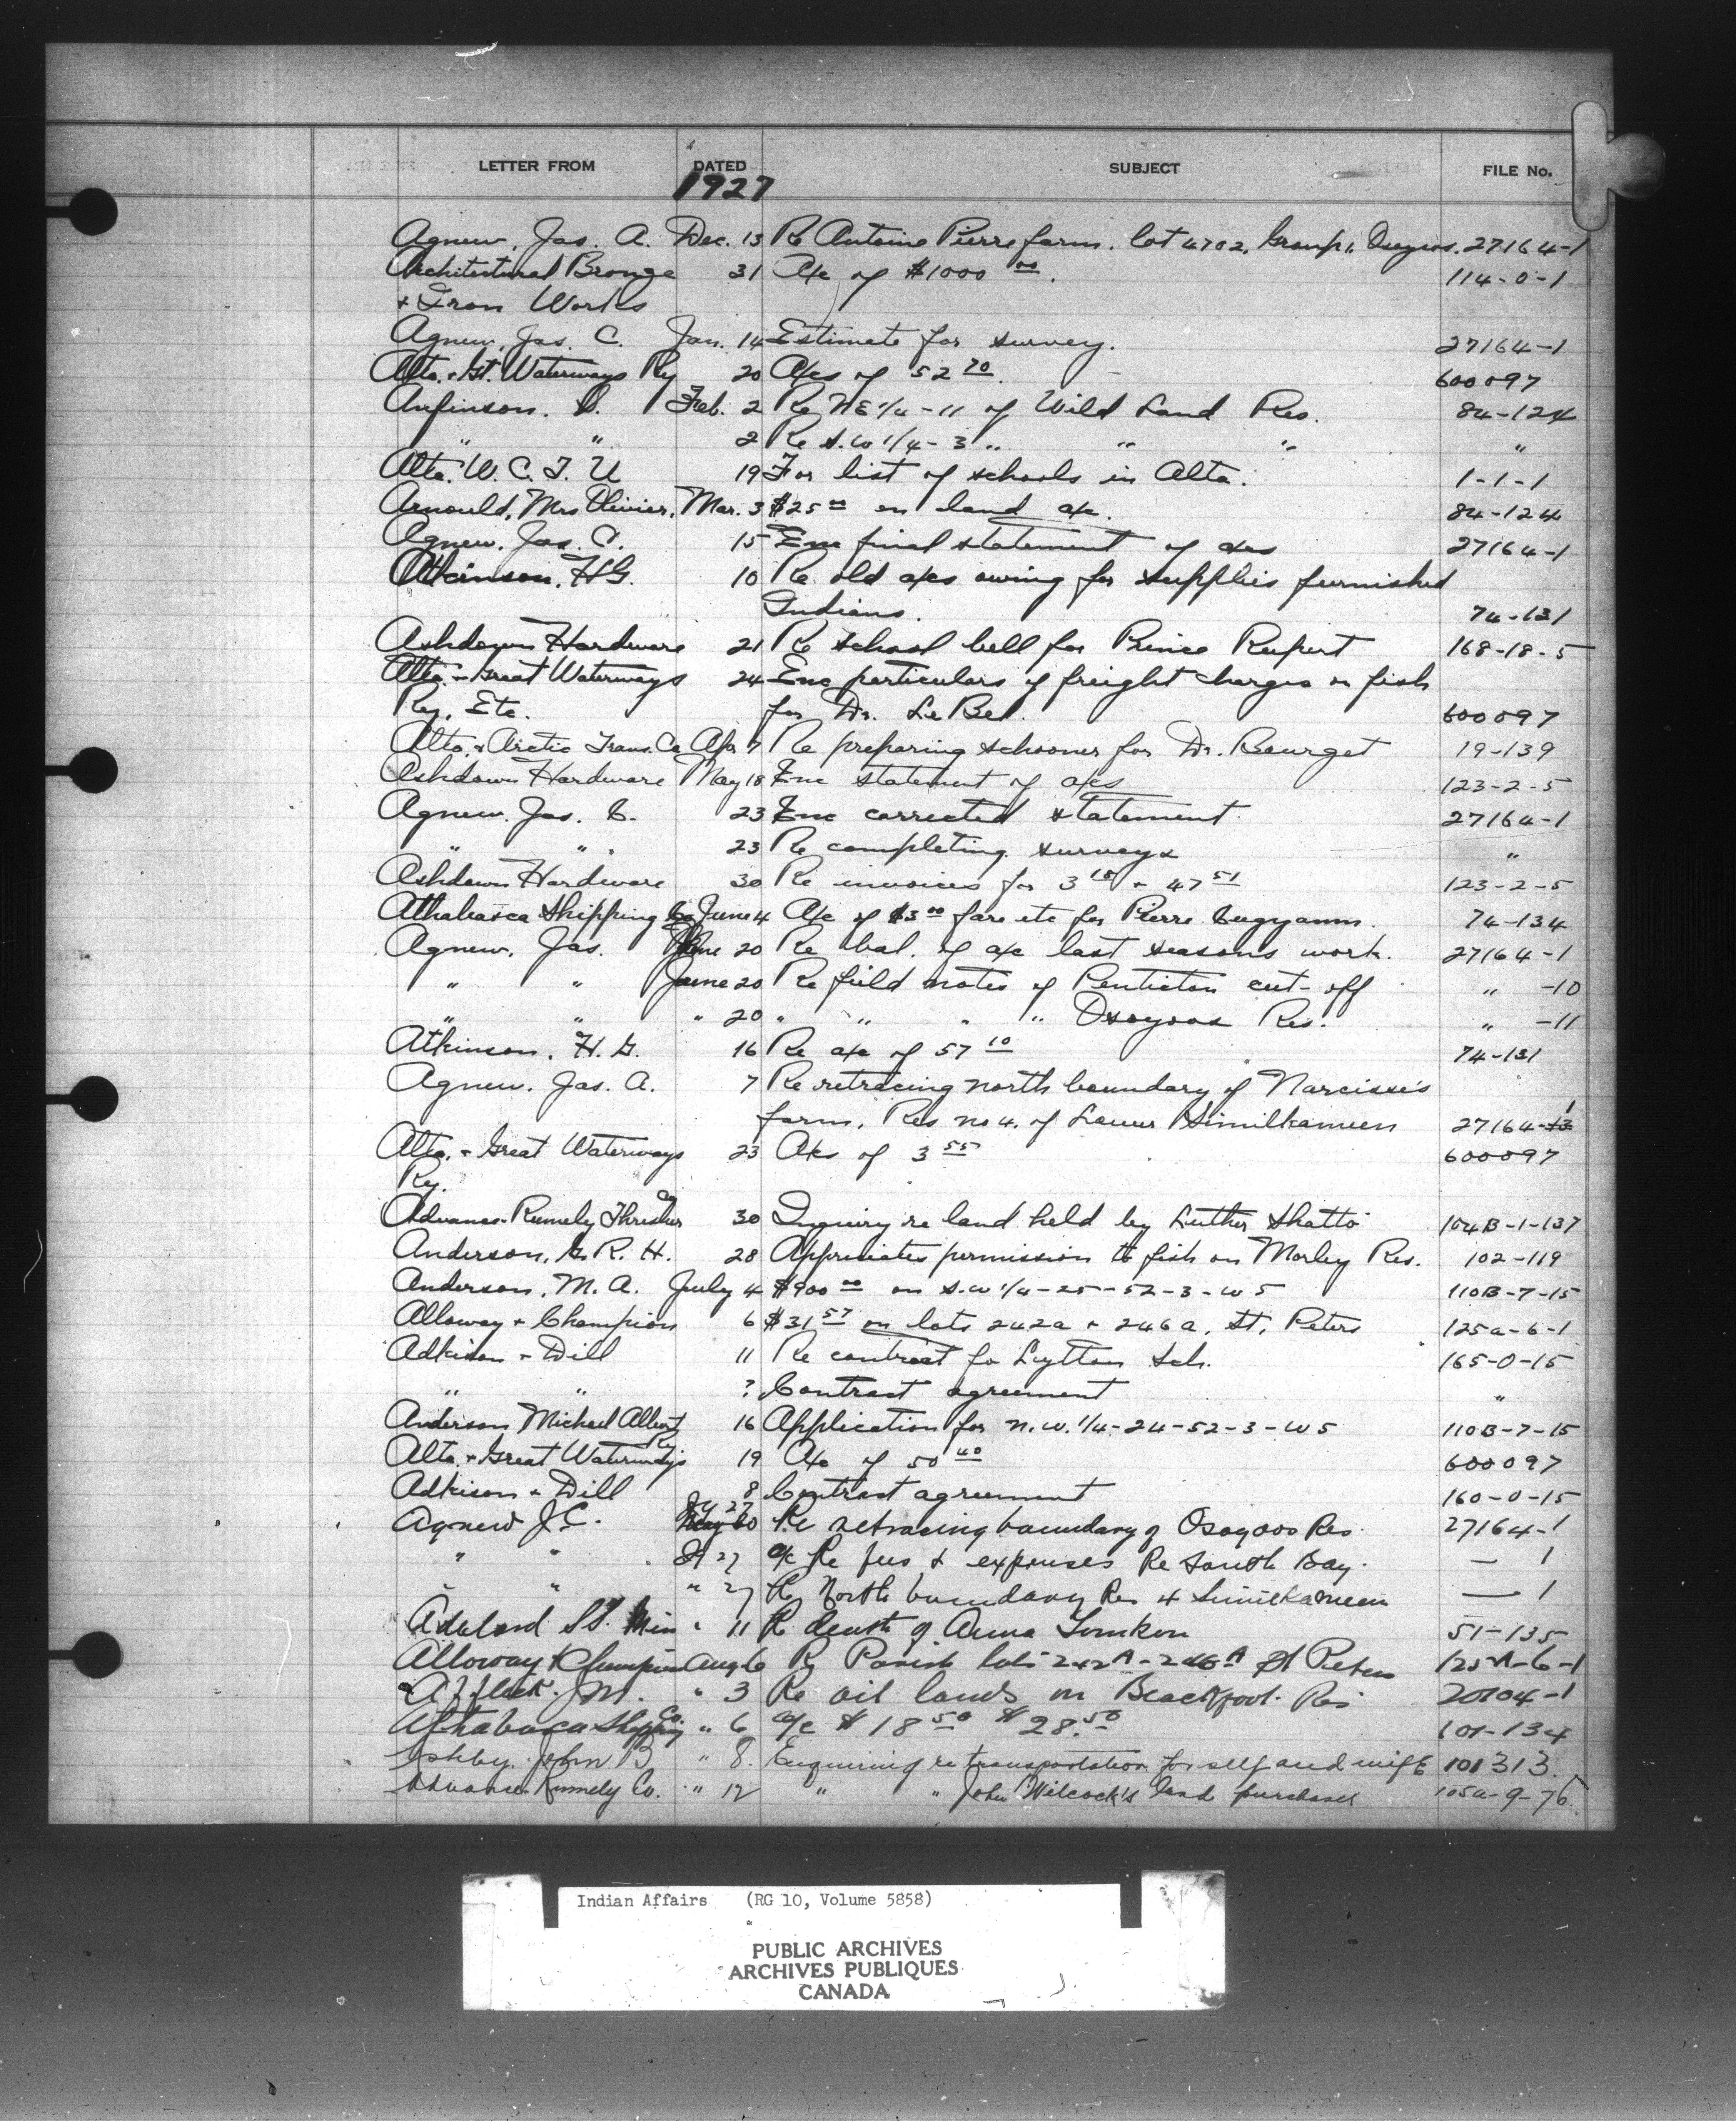 LETTER FROM DATED SUBJECT FILE No.
1927
Agnew, Jas. A. Dec. 13 Re Antoine Pierre farm. lot 4702, Group 1, Osoyoos. 27164-1
Architectural Bronze 31 A/c of $1000 00. 114-0-1
+ Iron Works
Agnew, Jas. C. Jan. 14 Estimate for survey. 27164-1
Alta. + Gt. Waterways Ry 20 A/cs of 52 70. 600097
Anfinson. D. Feb. 2 Re NE 1/4 - 11 of Wild Land Res. 84-124
" " 2 Re S.W 1/4 - 3 " " " "
Alta. W. C. T. U 19 For list of schools in Alta. 1-1-1
Arnould, Mrs Olivier, Mar. 3 $25 00 on land a/c. 84-124
Agnew. Jas. C. 15 Enc final statement of a/cs 27164-1
Atkinson, H G. 10 Re old a/cs owing for supplies furnished
Indians. 74-131
Ashdown Hardware 21 Re school bell for Prince Rupert 168-18-5
Alta. + Great Waterways 24 Enc particulars of freight charges on fish
Ry, Etc. for Dr. Le Bel. 600097
Alta. + Arctic Trans. Co Apr 7 Re preparing schooner for Dr. Bourget 19-139
Ashdown Hardware May 18 Enc statement of a/cs 123-2-5
Agnew. Jas. C. 23 Enc corrected statement. 27164-1
" " 23 Re completing surveys "
Ashdown Hardware 30 Re invoices for 3 15 + 47 51 123-2-5
Athabasca Shipping Co June 4 A/c of $3 00 fare etc for Pierre 74-134
Agnew, Jas. June 20 Re bal. of a/c last seasons work. 27164-1
" " June 20 Re field notes of Penticton cut-off " -10
" " " 20 " " " " Osoyoos Res. " -11
Atkinson, H. G. 16 Re a/c of 57 10 74-131
Agnew, Jas. A. 7 Re retracing north boundary of Narcisse's
farm, Res no 4. of Lower Similkameen 27164-1
Alta. + Great Waterways 23 A/cs of 3 55 600097
Ry.
Advance-Rumely Thresher Co 30 Inquiry re land held by Luther Shatto 104B-1-137
Anderson, G. R. H. 28 Appreciates permission to fish on Morley Res. 102-119
Anderson, M. A. July 4 $900 00 on S.W 1/4-25-52-3-W 5 110B-7-15
Alloway + Champion 6 $31 57 on lots 242a + 246a, St. Peters 125a-6-1
Adkison + Dill 11 Re contract fo Lytton Sch. 165-0-15
" " ? Contract agreement "
Anderson Michael Albert 16 Application for N.W. 1/4-24-52-3-W 5 110B-7-15
Alta. + Great Waterways Ry 19 A/c of 50 40 600097
Adkison + Dill 8 Contract agreement 160-0-15
Agnew J. C. Jy 27 Re retracing boundary of Osoyoos Res. 27164-1
" " Jy 27 a/c Re fees & expenses Re South Bay. — 1
" " " 27 Re North boundary Res 4 Similkameen — 1
St. Min " 11 Re death of Anna 51-135
Alloway & Champion Aug 6 Re Parish lots 242A - 246A St Peters 125A-6-1
Affleck. J M. " 3 Re oil lands on Blackfoot. Res 20104-1
Athabasca Shipping Co. " 6 a/c $18 50 $28. 50 101-134
Ashby. John B " 8. Enquiring re transportation for self and wife 101313.
Advance Rumely Co. " 12 " " John Wilcock's land purchases 105a-9-76.
Indian Affairs (RG 10, Volume 5858)
PUBLIC ARCHIVES
ARCHIVES PUBLIQUES
CANADA